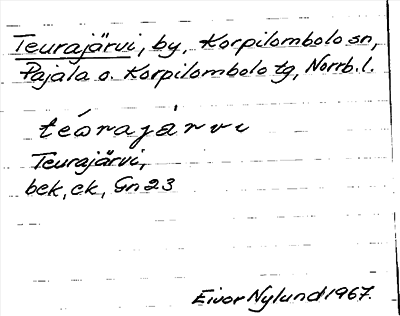 Teurajärvi, by, Korpilombolo sn,
Pajala o. Korpilombolo tg, Norrb. l.
teͦrajárvi
Teurajärvi,
bek, ek, Gn 23
Eivor Nylund 1967.